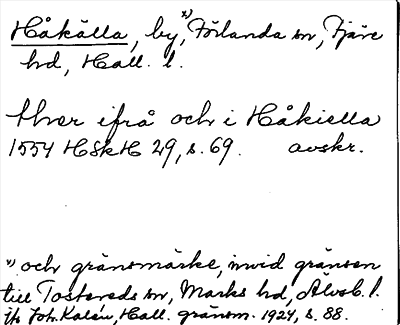 Håkälla, by,*) Förlanda sn, Fjäre
hd, Hall. l.
thær ifrå och i Håkiella
1554 HSkH 29, s. 69. avskr.
*) och gränsmärke, invid gränsen
till Tostareds sn, Marks hd, Älvsb. l.
jfr Joh. Kalén, Hall. gränsm. 1924, s. 88.